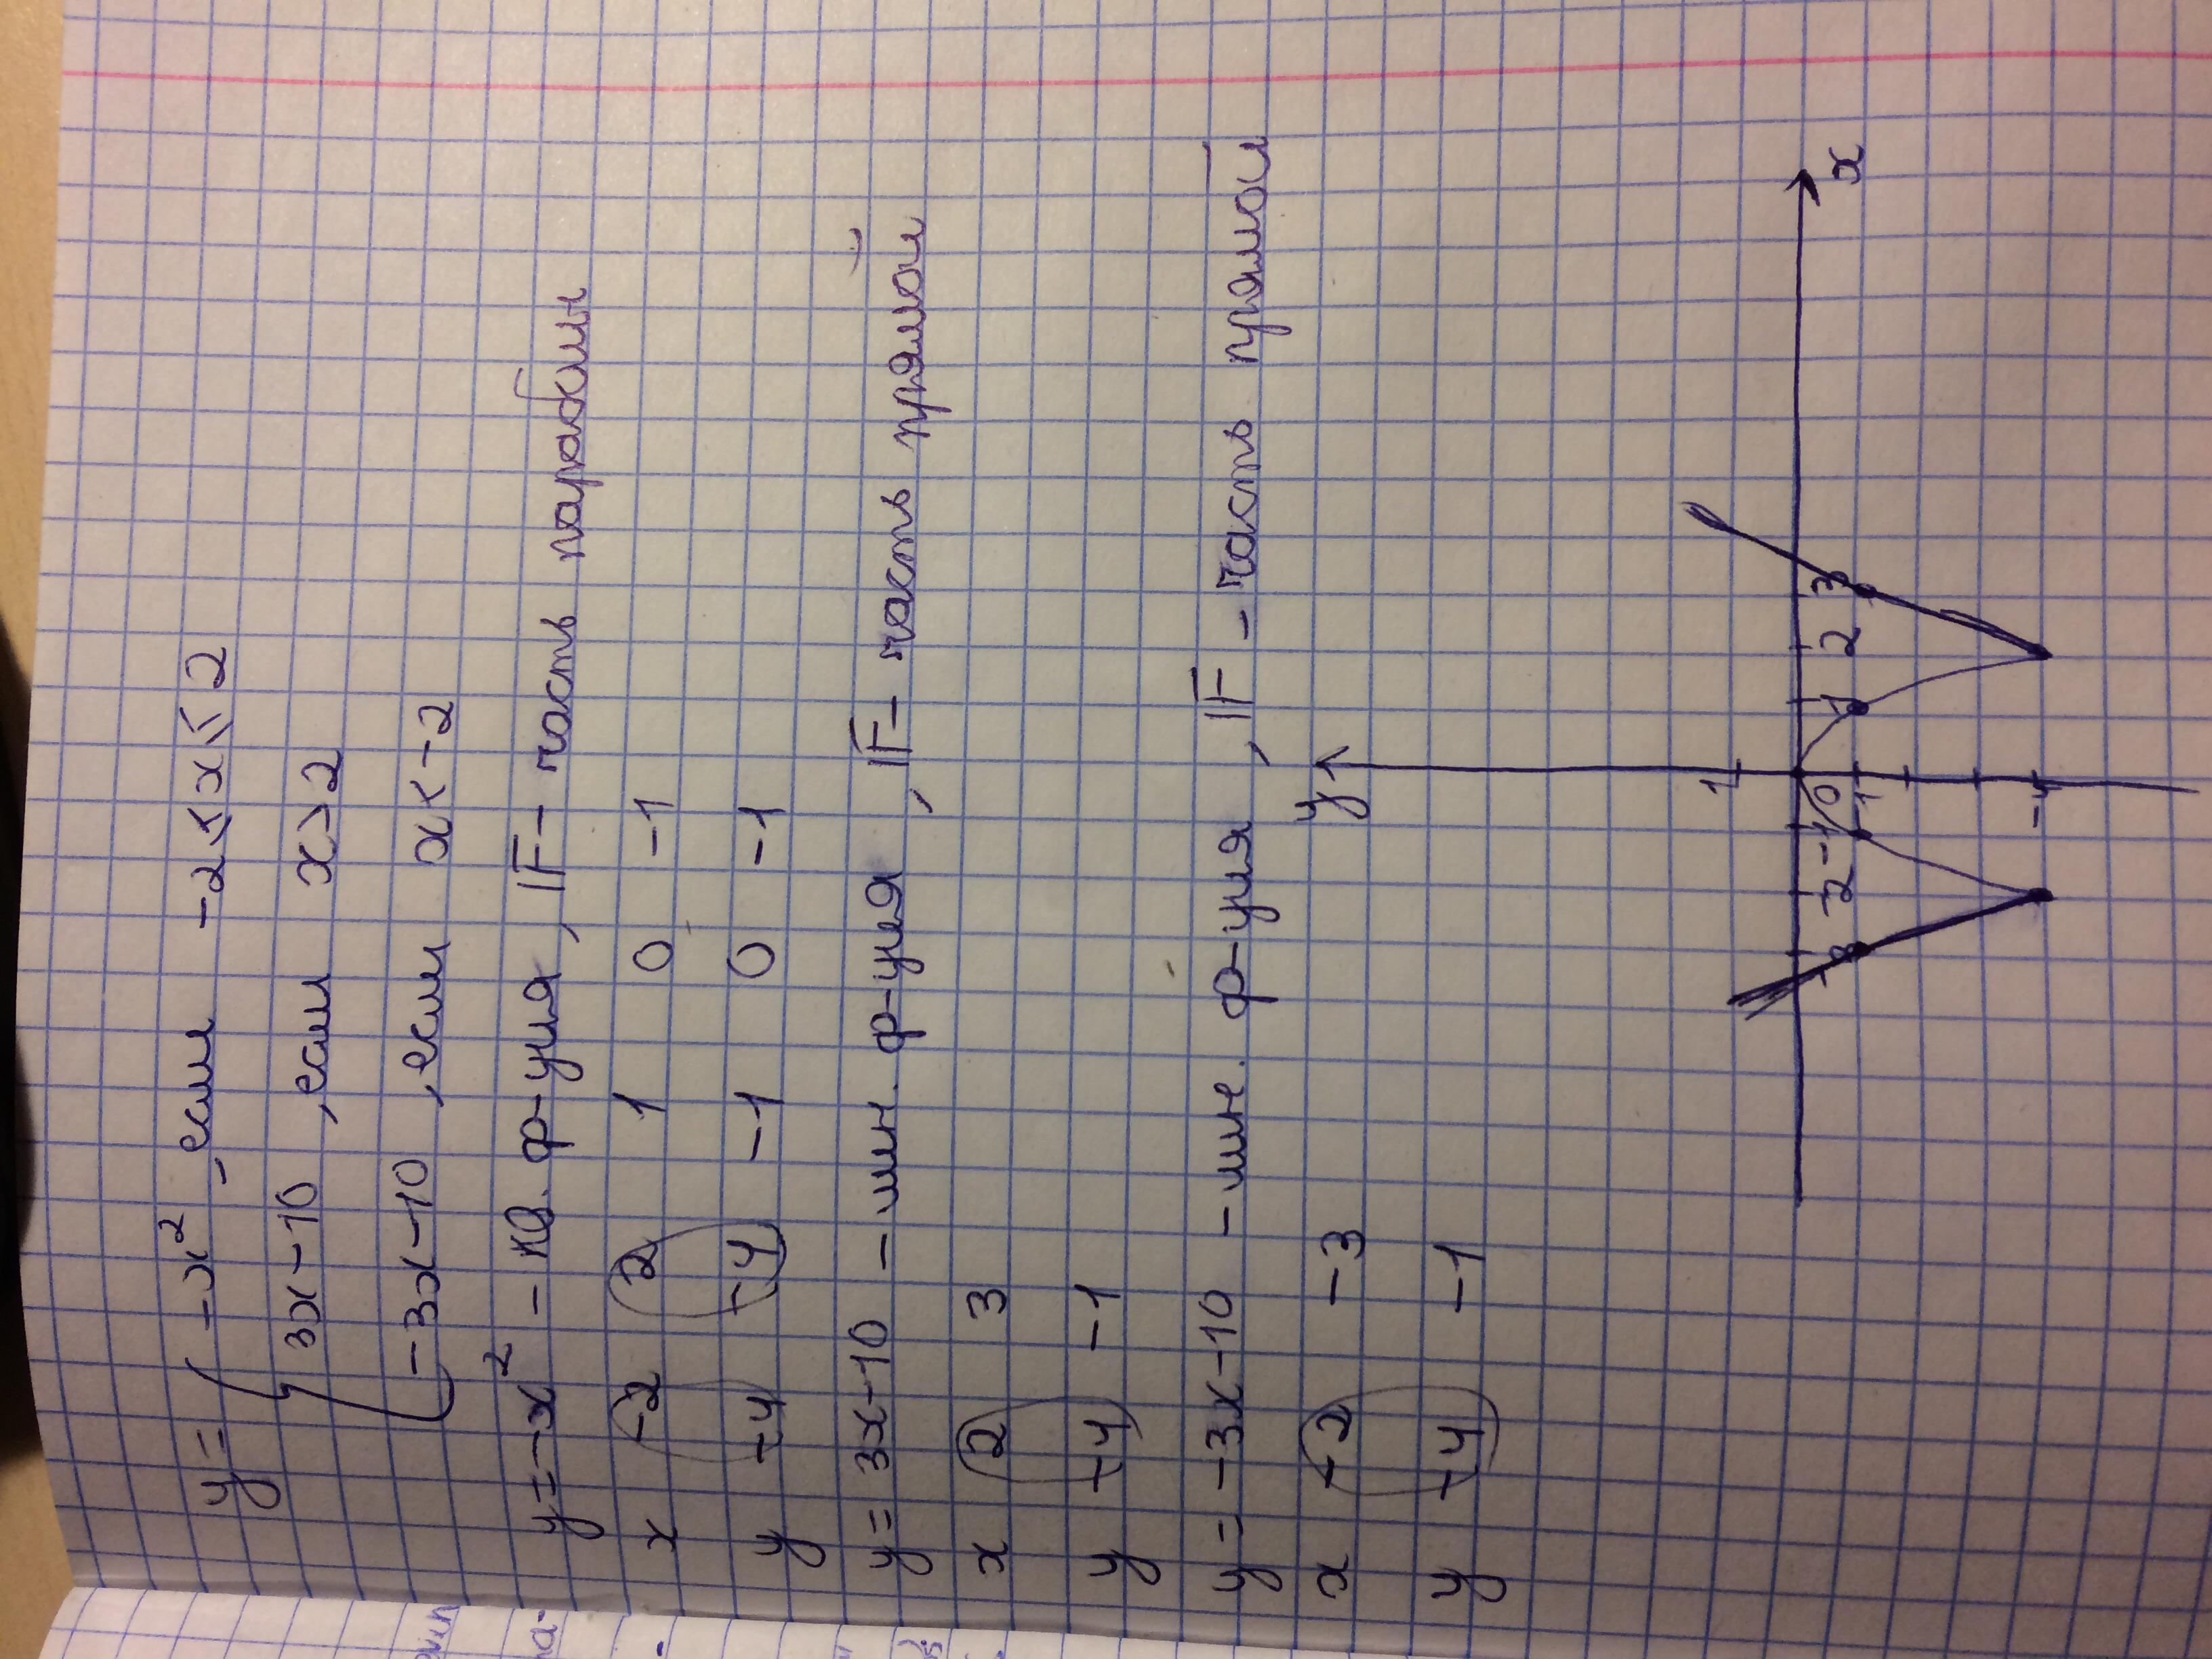 y=
-x², если -2≤x≤2
3x-10, если x>2
-3x-10, если x<-2
y=-x² - кв. ф-ция, Г- часть параболы
x -2 2 1 0 -1
y -4 -4 -1 0 -1
y=3x-10 - лин. ф-ция, Г- часть прямой
x 2 3
y -4 -1
y=-3x-10 - лин. ф-ция, Г- часть прямой
x -2 -3
y -4 -1
y
1
-3 -2 -1 0 1 2 3 x
-1
-4